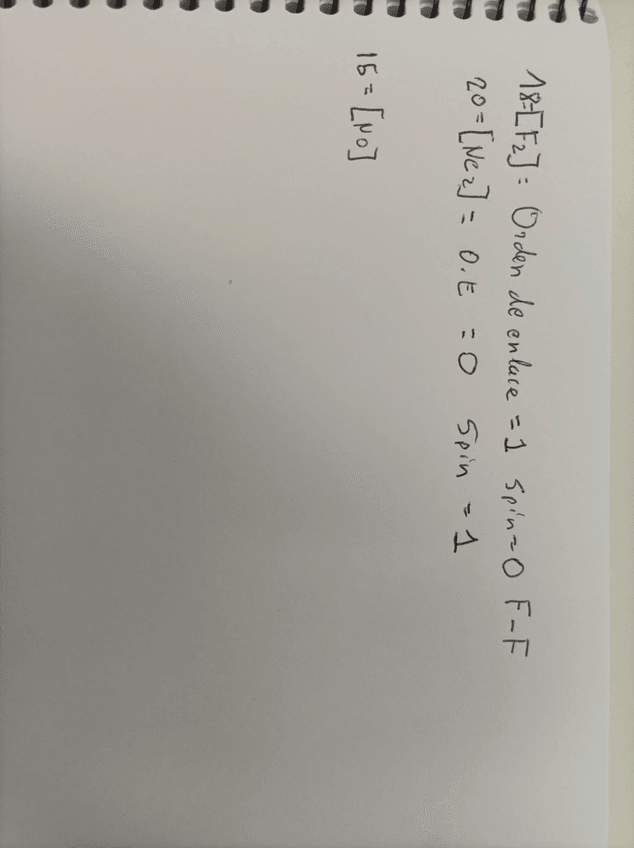 18=[F2]: Orden de enlace = 1 Spin=0 F-F
20=[Ne2]= O.E = 0 Spin = 1
15=[NO]